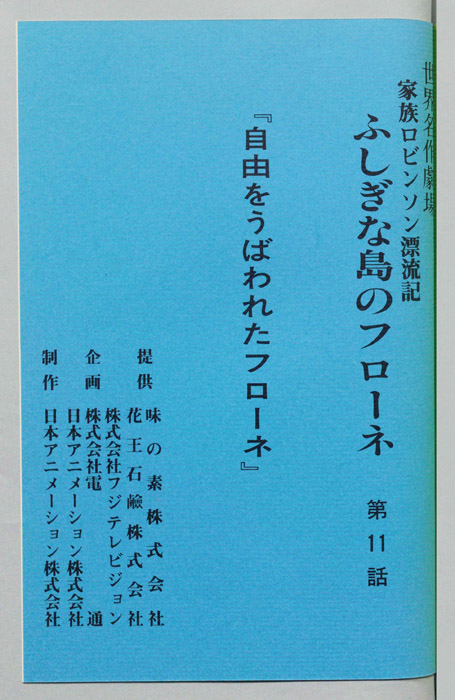 世界名作劇場
家族ロビンソン漂流記
ふしぎな島のフローネ 第11話
『自由をうばわれたフローネ』
提供 味の素株式会社
花王石鹸株式会社
株式会社フジテレビジョン
企画 株式会社電通
日本アニメーション株式会社
制作 日本アニメーション株式会社